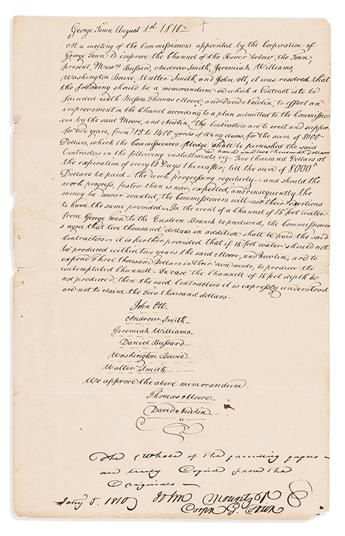 George Town August 1st 1816
At a meeting of the Commissioners appointed by the Corporation of
George Town to improve the Channel of the River below the Town,
present, Messrs Bussard, Andrew Smith, Jeremiah Williams,
Washington Bowie, Walter Smith, and John Ott, it was resolved that
the following should be a memorandum on which a Contract is to be
founded with Messrs Thomas Moore, and David Newlin, to effect an
improvement in the Channel according to a plan submitted to the Commission-
ers by the said Moore, and Newlin. The contractors are to and
for two years, from 12 to 1500 yards of for the sum of 8000
Dollars, which the Commissioners pledge to furnished the said
Contractors in the following installments viz Two thousand Dollars at
the expiration of every 60 Days thereafter, till the sum of 8000
Dollars be paid the work progressing regularly and should the
work progress, faster than is now expected, and consequently the
money be sooner wanted, the Commissioners will use their exertions
to have the same provided. In the event of a channel of 15 feet water
from George Town to the Eastern Branch be produced, the Commissioners
agree that five thousand dollars in addition shall be paid the said
Contractors it is further provided that if 15 feet water should not
be produced within two years the said Moore, and Newlin, are to
expend Three thousand Dollars in their own mode, to produce the
contemplated Channel. In case the Channel of 15 feet depth be
not produced, then the said Contractors it is expressly understood
are not to claim the five thousand dollars.
John Ott
Andrew Smith
Jeremiah Williams
Daniel Bussard
Washington Bowie
Walter Smith
We approve the above memorandum
Thomas Moore
David Newlin
The whole of the preceding papers
are truly Copied from the
Originals
John Mountz